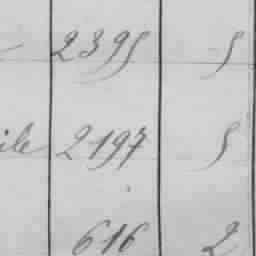 2395 5
ile 2197 5
616 2